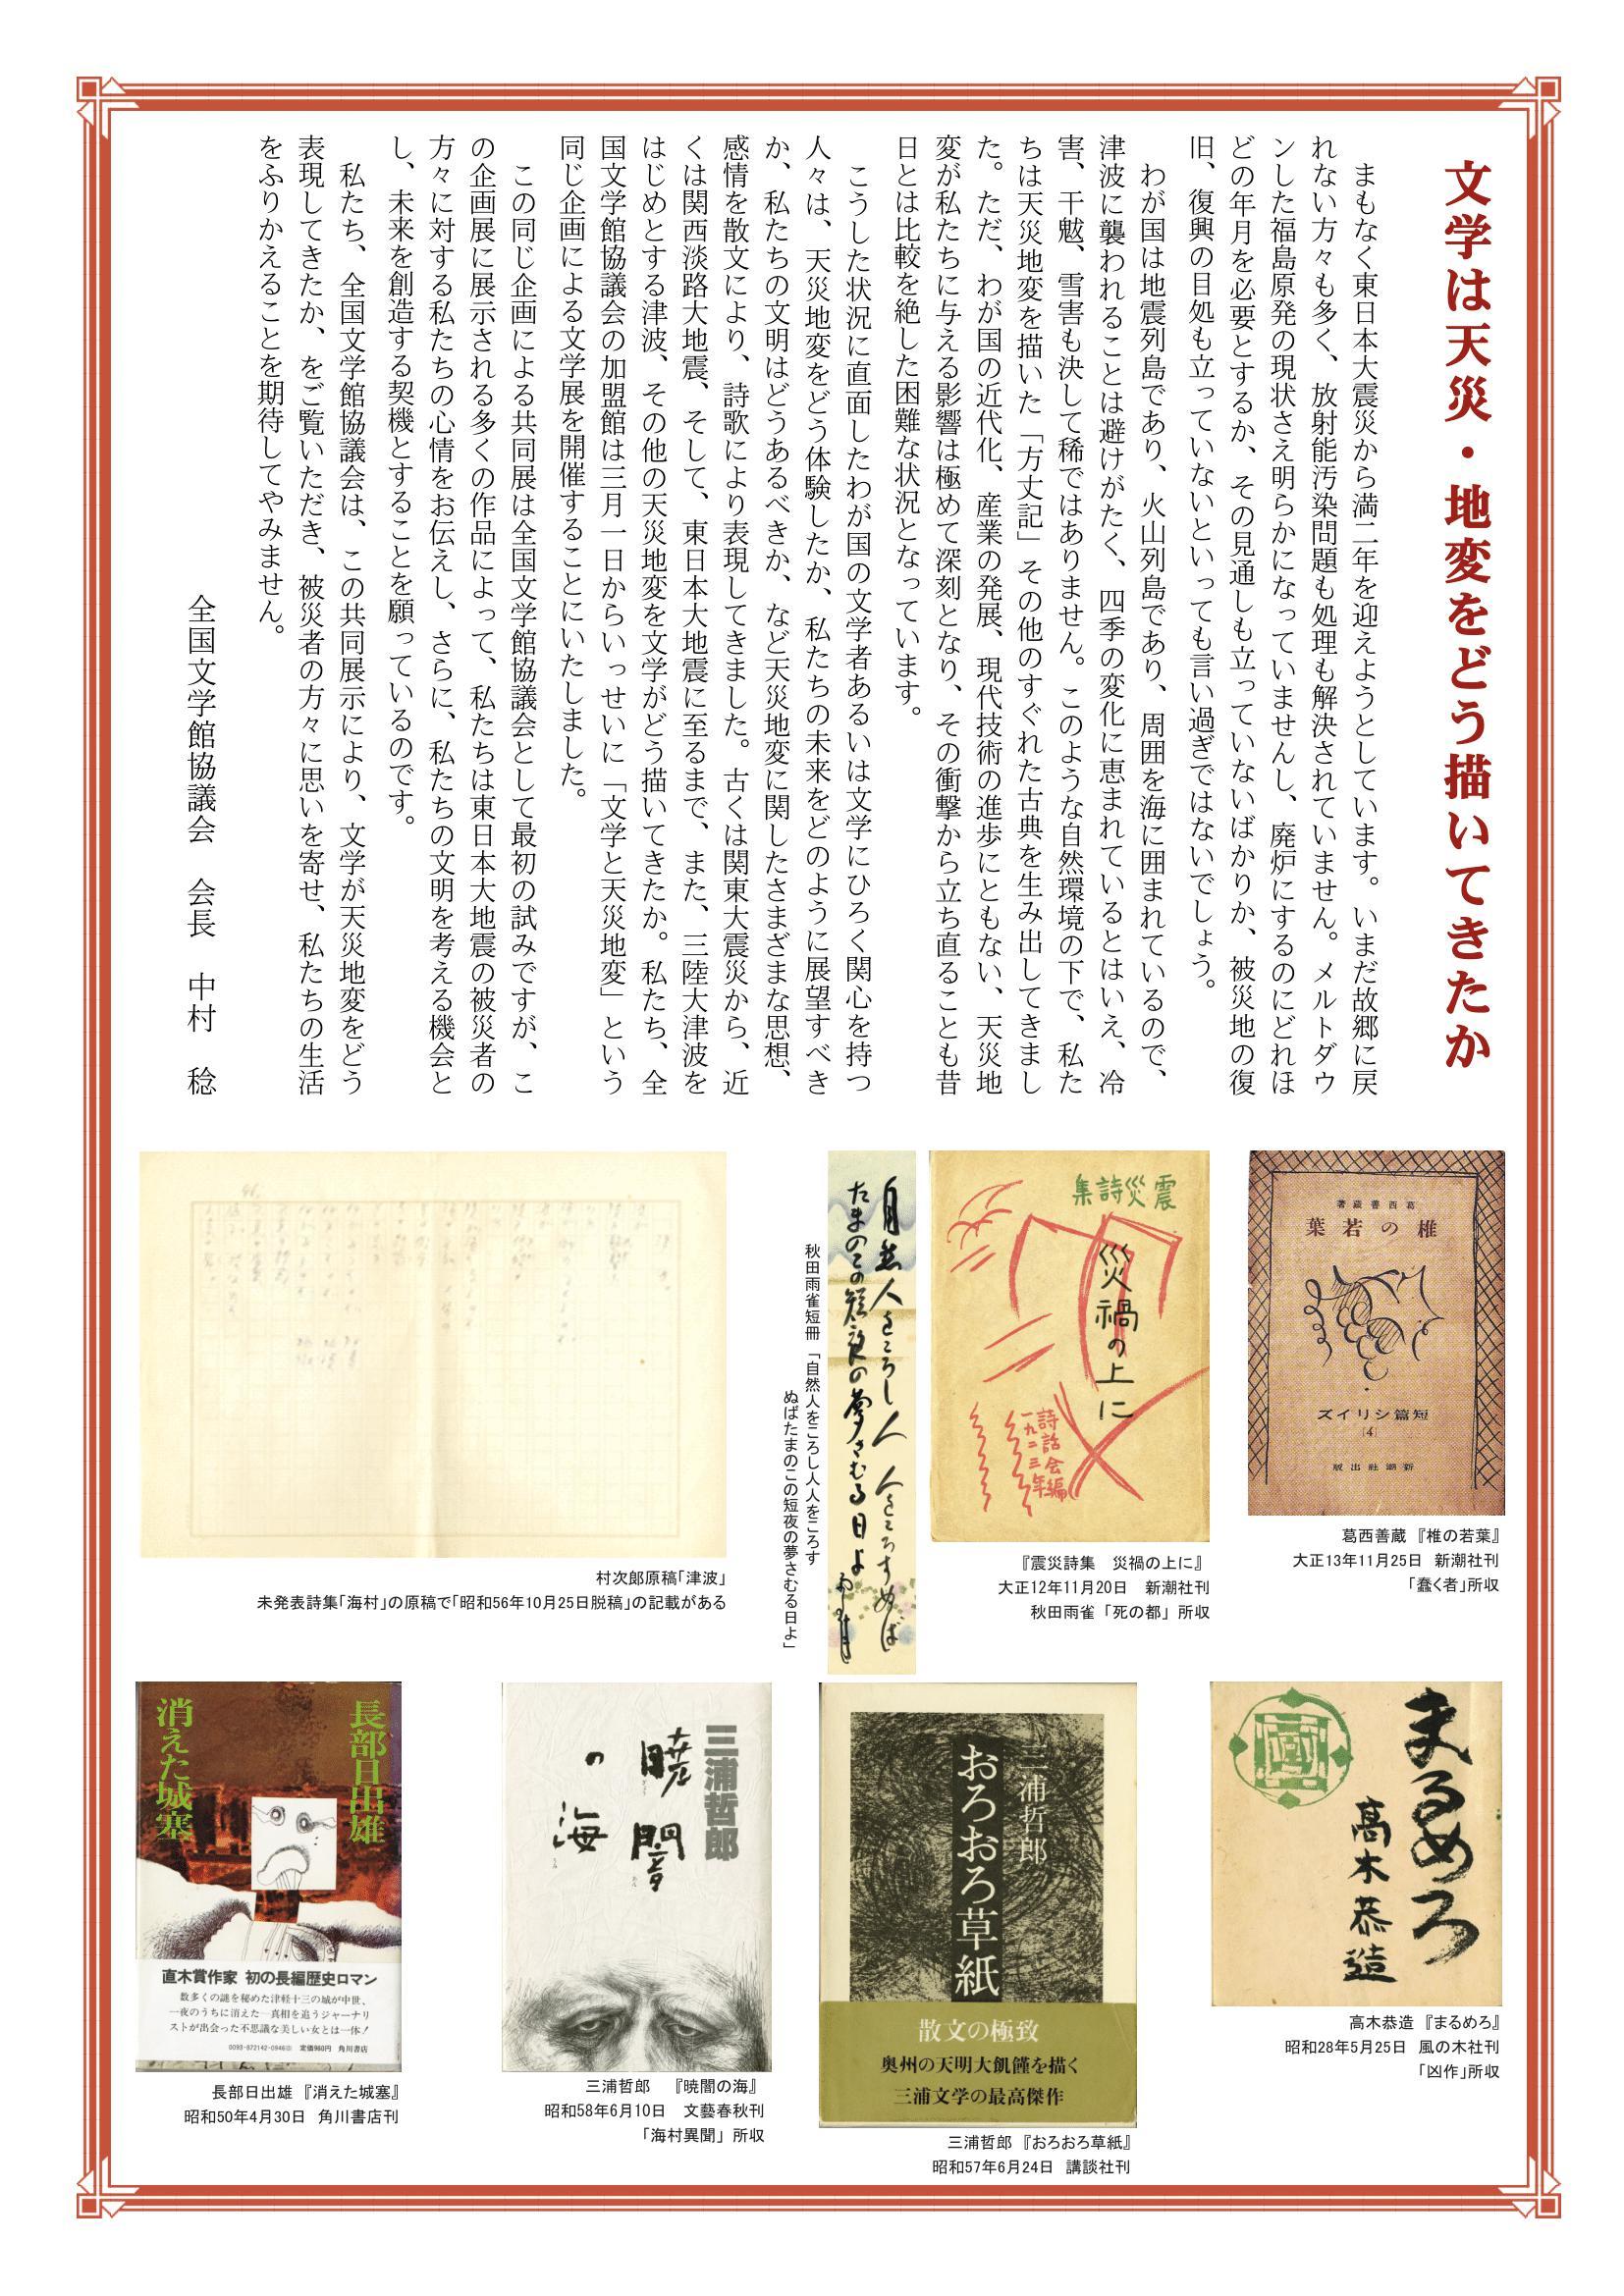 文学は天災・地変をどう描いてきたか
まもなく東日本大震災から満二年を迎えようとしています。いまだ故郷に戻
れない方々も多く、放射能汚染問題も処理も解決されていません。メルトダウ
ンした福島原発の現状さえ明らかになっていませんし、廃炉にするのにどれほ
どの年月を必要とするか、その見通しも立っていないばかりか、被災地の復
旧、復興の目処も立っていないといっても言い過ぎではないでしょう。
わが国は地震列島であり、火山列島であり、周囲を海に囲まれているので、
津波に襲われることは避けがたく、四季の変化に恵まれているとはいえ、冷
害、干魃、雪害も決して稀ではありません。このような自然環境の下で、私た
ちは天災地変を描いた「方丈記」その他のすぐれた古典を生み出してきまし
た。ただ、わが国の近代化、産業の発展、現代技術の進歩にともない、天災地
変が私たちに与える影響は極めて深刻となり、その衝撃から立ち直ることも昔
日とは比較を絶した困難な状況となっています。
こうした状況に直面したわが国の文学者あるいは文学にひろく関心を持つ
人々は、天災地変をどう体験したか、私たちの未来をどのように展望すべき
か、私たちの文明はどうあるべきか、など天災地変に関したさまざまな思想、
感情を散文により、詩歌により表現してきました。古くは関東大震災から、近
くは関西淡路大地震、そして、東日本大地震に至るまで、また、三陸大津波を
はじめとする津波、その他の天災地変を文学がどう描いてきたか。私たち、全
国文学館協議会の加盟館は三月一日からいっせいに「文学と天災地変」という
同じ企画による文学展を開催することにいたしました。
この同じ企画による共同展は全国文学館協議会として最初の試みですが、こ
の企画展に展示される多くの作品によって、私たちは東日本大地震の被災者の
方々に対する私たちの心情をお伝えし、さらに、私たちの文明を考える機会と
し、未来を創造する契機とすることを願っているのです。
私たち、全国文学館協議会は、この共同展示により、文学が天災地変をどう
表現してきたか、をご覧いただき、被災者の方々に思いを寄せ、私たちの生活
をふりかえることを期待してやみません。
全国文学館協議会　会長　中村　稔
葛西善蔵著
椎の若葉
短篇シリイズ
〔4〕
新潮社出版
葛西善蔵『椎の若葉』
大正13年11月25日　新潮社刊
「蠢く者」所収
震災詩集
災禍の上に
詩話会編
一九二三年
『震災詩集　災禍の上に』
大正12年11月20日　新潮社刊
秋田雨雀「死の都」所収
自然人をころし人人をころすぬば
たまのこの短夜の夢さむる日よ
秋田雨雀短冊「自然人をころし人人をころす
ぬばたまのこの短夜の夢さむる日よ」
村次郎原稿「津波」
未発表詩集「海村」の原稿で「昭和56年10月25日脱稿」の記載がある
まるめろ
高木恭造
高木恭造『まるめろ』
昭和28年5月25日　風の木社刊
「凶作」所収
三浦哲郎
おろおろ草紙
散文の極致
奥州の天明大飢饉を描く
三浦文学の最高傑作
三浦哲郎『おろおろ草紙』
昭和57年6月24日　講談社刊
三浦哲郎
暁闇
の海
三浦哲郎　『暁闇の海』
昭和58年6月10日　文藝春秋刊
「海村異聞」所収
長部日出雄
消えた城塞
直木賞作家 初の長編歴史ロマン
数多くの謎を秘めた津軽十三の城が中世、
一夜のうちに消えた─真相を追うジャーナリ
ストが出会った不思議な美しい女とは一体！
0093-872142-0946⓪　定価960円　角川書店
長部日出雄『消えた城塞』
昭和50年4月30日　角川書店刊